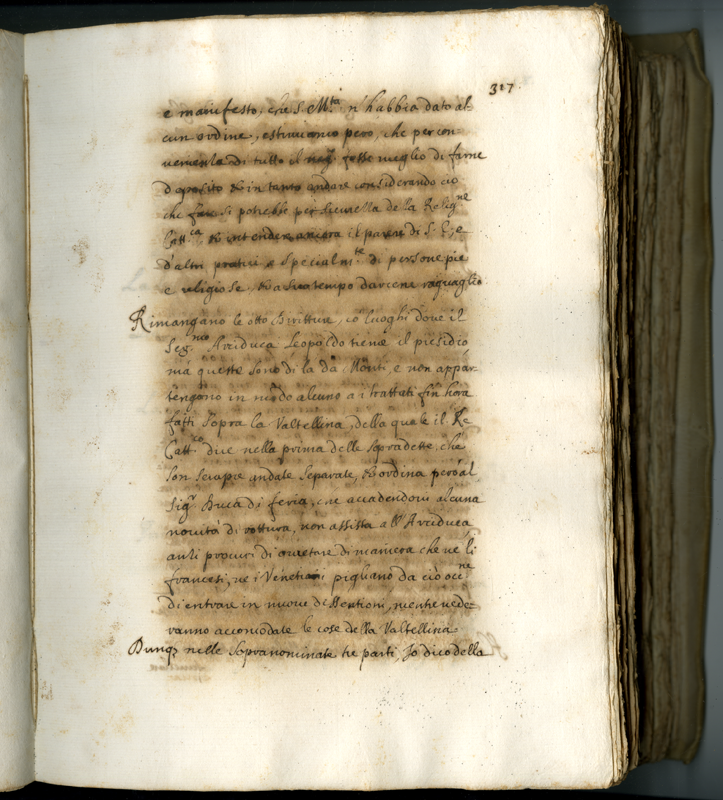 317.
e manifesto, che S. M.ta n'habbia dato al-
cun ordine, estimiamo però, che per con-
uenienza di tutto il neg.o fosse meglio di farne
deposito et in tanto andare considerando ciò
che fare si potrebbe per sicurezza de la Relig.ne
Catt.ca et intendere ancora il parere di S. E. e
d'altri pratici e specialm.te di persone pie
e religiose, et a suo tempo darcene raguaglio
Rimangano le otto Diritture, ò luoghi dove il
Seg.mo Arciduca Leopoldo tiene il presidio
mà queste sono di la da Monti, e non appar-
tengono in modo alcuno a i trattati fin hora
fatti sopra la Valtellina, della quale il Re
Catt.co due nella prima delle sopradette, che
son sempre andate separate, et ordina però al
Sig.r Duca di feria, che accadendovi alcuna
novità di rottura, non assista all'Arciduca,
anzi procuri di quietare di maniera che ne li
francesi, ne i Venetiani pigliano da ciò occ.ne
di entrare in nuove di Sentioni, mentre vede-
ranno accomodate le cose della Valtellina.
Dunq3 nelle sopranominate tre parti Io dico della